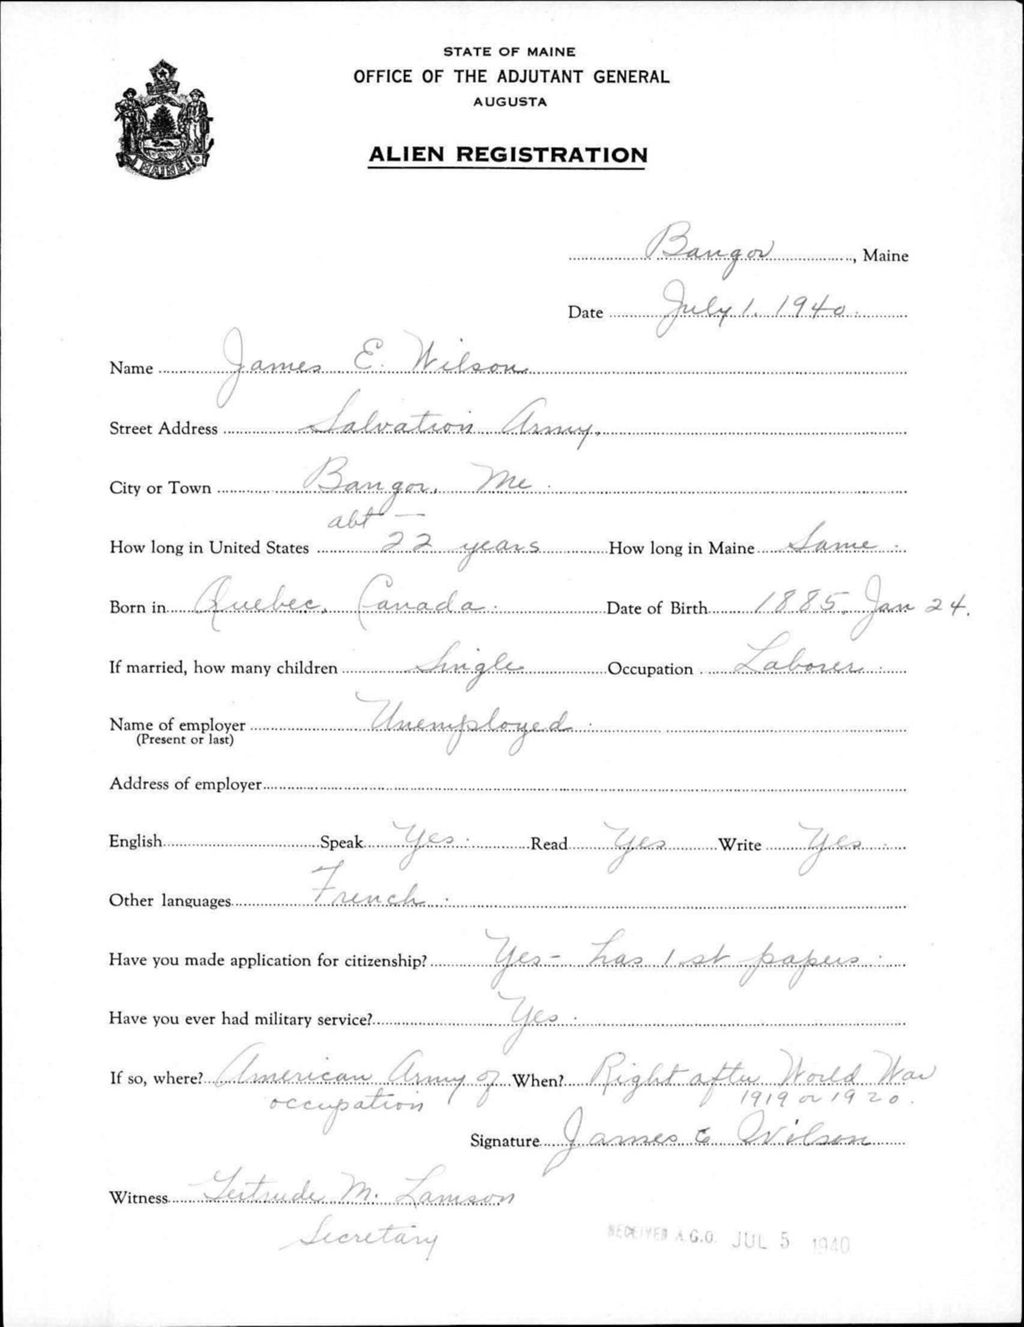 STATE OF MAINE
OFFICE OF THE ADJUTANT GENERAL
AUGUSTA
ALIEN REGISTRATION
MAINE
Bangor, Maine
Date July 1, 1940.
Name James E. Wilson
Street Address Salvation Army.
City or Town Bangor, Me.
abt —
How long in United States 22 years How long in Maine Same.
Born in Quebec, Canada. Date of Birth 1885, Jan 24.
If married, how many children Single Occupation Laborer.
Name of employer Unemployed.
(Present or last)
Address of employer
English Speak Yes. Read Yes Write Yes.
Other languages French.
Have you made application for citizenship? Yes - has 1st papers.
Have you ever had military service? Yes.
If so, where? American Army of When? Right after World War
occupation 1919 or 1920.
Signature James E Wilson
Witness Gertrude M. Lamson
Secretary
RECEIVED A.G.O. JUL 5 1940